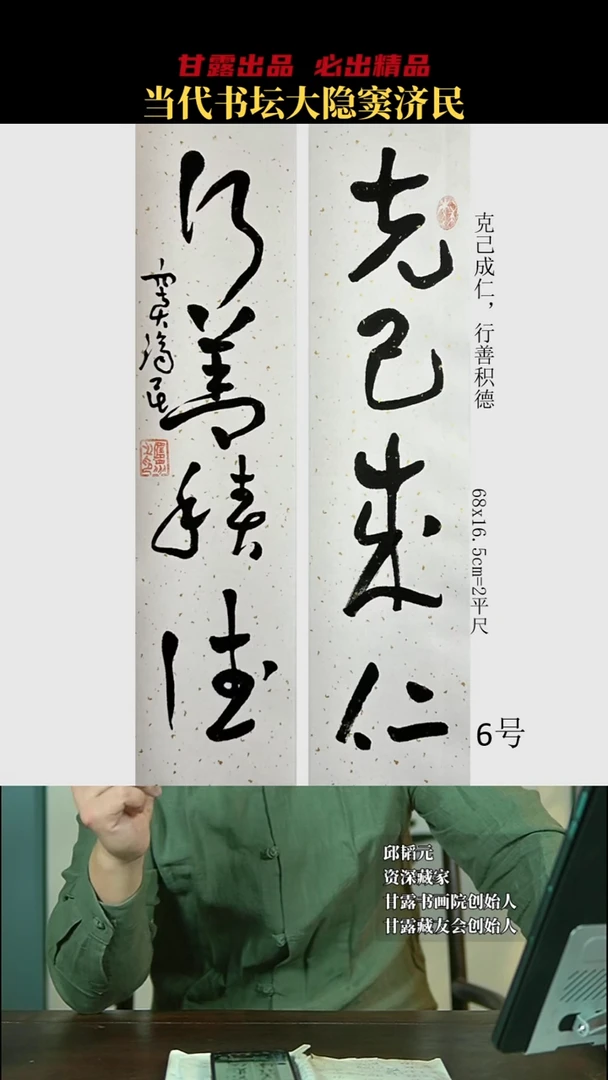 甘露出品 必出精品
当代书坛大隐窦济民
克己成仁
行善積德
窦济民
克己成仁，行善积德
68x16.5cm=2平尺
6号
邱韬元
资深藏家
甘露书画院创始人
甘露藏友会创始人